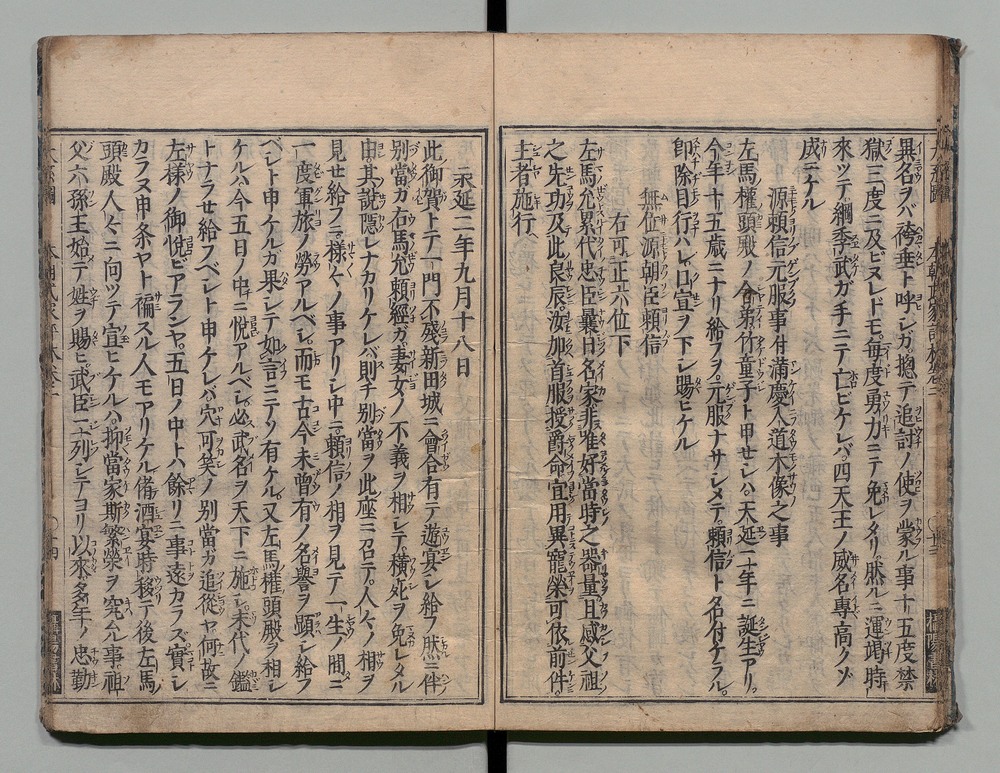 異名ヲバ袴垂ト呼レシガ。揔テ追討ノ使ヲ蒙ル事十五度禁
獄三度ニ及ビヌレドモ。毎度勇力ニテ免レタリ。然ルニ運竭時
來ツテ綱季武ガ手ニテ亡ビケレバ。四天王ノ威名專高クゾ
成ニケル
源頼信元服事付満慶入道木像之事
左馬權頭殿ノ舎弟竹童子ト申セシハ。天延二年ニ誕生アリ。
今年十五歳ニナリ給フヲ。元服ナサシメテ。頼信ト名付ケラル。
即除目行ハレ。口宣ヲ下シ賜ヒケル
無位源朝臣頼信
右可正六位下
左馬允累代忠臣曩日名家非唯好當時之器量且感父祖
之先功及此良辰汝加首服授爵命宜用異寵榮可依前件
主者施行
永延二年九月十八日
此御賀トテ一門不殘新田城ニ會合有テ遊宴シ給フ。然ニ件ノ
別當ガ右馬允頼經ガ。妻女ノ不義ヲ相シテ。横死ヲ免レタル
由其説隠レナカリケレバ。則チ別當ヲ此座ニ召テ。人々ノ相ヲ
見セ給フニ。様々ノ事アリシ中ニ。頼信ノ相ヲ見テ一生ノ間ニ
一度軍旅ノ勞アルベシ。而モ古今未曽有ノ名譽ヲ顕シ給フ
ベシト申ケルガ。果シテ如言ニテゾ有ケル。又左馬權頭殿ヲ相シ
ケルハ。今五日ノ中ニ悦アルベシ。必武名ヲ天下ニ施シ。末代ノ鑑
トナラセ給フベシト申ケレバ。穴可笑ノ別當ガ追從ヤ。何故ニ
左様ノ御悦ビアランヤ。五日ノ中トハ餘リニ事遠カラズ。實シ
カラヌ申条ヤト。褊スル人モアリケル。偖酒宴時移テ後。左馬
頭殿人々ニ向ツテ宣ヒケルハ。抑當家斯繁榮ヲ究ムル事。祖
父六孫王始テ姓ヲ賜ヒ。武臣ニ列シテヨリ以來。多年ノ忠勤